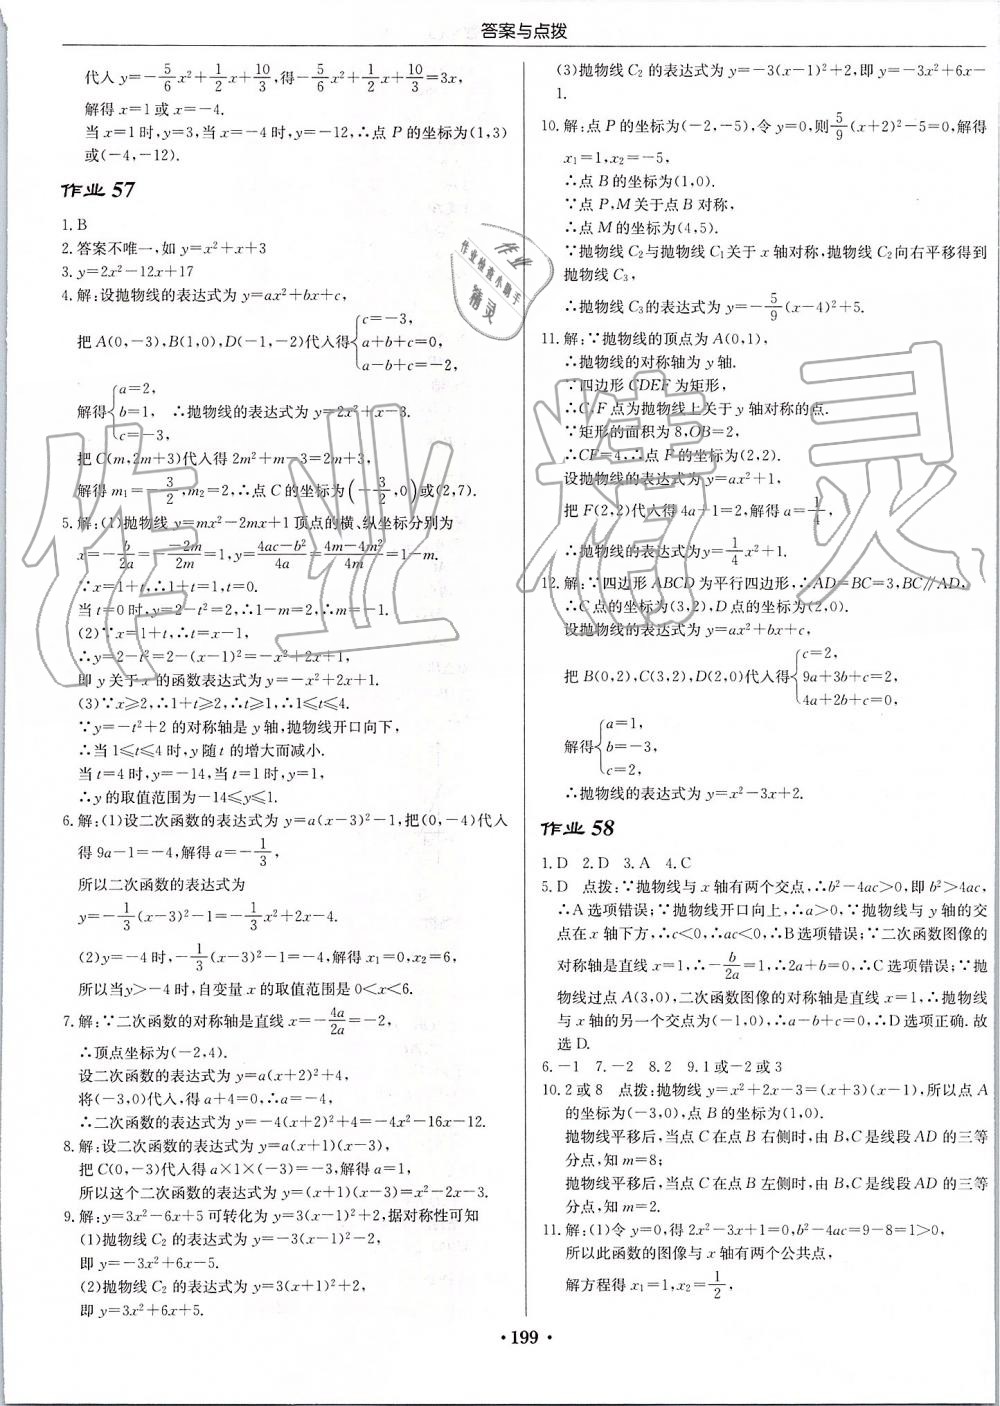 答案与点拨
代入y=-5/6x²+1/2x+10/3,得-5/6x²+1/2x+10/3=3x,
解得x=1或x=-4.
当x=1时,y=3,当x=-4时,y=-12,∴点P的坐标为(1,3)
或(-4,-12).
作业57
1.B
2.答案不唯一,如y=x²+x+3
3.y=2x²-12x+17
4.解:设抛物线的表达式为y=ax²+bx+c,
把A(0,-3),B(1,0),D(-1,-2)代入得{c=-3,
a+b+c=0,
a-b+c=-2,
解得{a=2,
b=1,
c=-3,
∴抛物线的表达式为y=2x²+x-3.
把C(m,2m+3)代入得2m²+m-3=2m+3,
解得m₁=-3/2,m₂=2,∴点C的坐标为(-3/2,0)或(2,7).
5.解:(1)抛物线y=mx²-2mx+1顶点的横、纵坐标分别为
x=-b/2a=-(-2m)/2m=1,y=(4ac-b²)/4a=(4m-4m²)/4m=1-m.
∵x=1+t,∴1+t=1,∴t=0.
当t=0时,y=2-t²=2,∴1-m=2,∴m=-1.
(2)∵x=1+t,∴t=x-1,
∴y=2-t²=2-(x-1)²=-x²+2x+1,
即y关于x的函数表达式为y=-x²+2x+1.
(3)∵x≥2,∴1+t≥2,∴t≥1,∴1≤t≤4.
∵y=-t²+2的对称轴是y轴,抛物线开口向下,
∴当1≤t≤4时,y随t的增大而减小.
当t=4时,y=-14,当t=1时,y=1,
∴y的取值范围为-14≤y≤1.
6.解:(1)设二次函数的表达式为y=a(x-3)²-1,把(0,-4)代入
得9a-1=-4,解得a=-1/3,
所以二次函数的表达式为
y=-1/3(x-3)²-1=-1/3x²+2x-4.
(2)y=-4时,-1/3(x-3)²-1=-4,解得x₁=0,x₂=6,
所以当y>-4时,自变量x的取值范围是0<x<6.
7.解:∵二次函数的对称轴是直线x=-4a/2a=-2,
∴顶点坐标为(-2,4).
设二次函数的表达式为y=a(x+2)²+4,
将(-3,0)代入,得a+4=0,∴a=-4,
∴二次函数的表达式为y=-4(x+2)²+4=-4x²-16x-12.
8.解:设二次函数的表达式为y=a(x+1)(x-3),
把C(0,-3)代入得a×1×(-3)=-3,解得a=1,
所以这个二次函数的表达式为y=(x+1)(x-3)=x²-2x-3.
9.解:y=3x²-6x+5可转化为y=3(x-1)²+2,据对称性可知
(1)抛物线C₂的表达式为y=-3(x-1)²-2,
即y=-3x²+6x-5.
(2)抛物线C₂的表达式为y=3(x+1)²+2,
即y=3x²+6x+5.
(3)抛物线C₂的表达式为y=-3(x-1)²+2,即y=-3x²+6x-
1.
10.解:点P的坐标为(-2,-5),令y=0,则5/9(x+2)²-5=0,解得
x₁=1,x₂=-5,
∴点B的坐标为(1,0).
∵点P,M关于点B对称,
∴点M的坐标为(4,5).
∵抛物线C₂与抛物线C₁关于x轴对称,抛物线C₂向右平移得到
抛物线C₃,
∴抛物线C₃的表达式为y=-5/9(x-4)²+5.
11.解:∵抛物线的顶点为A(0,1),
∴抛物线的对称轴为y轴.
∵四边形CDEF为矩形,
∴C、F点为抛物线上关于y轴对称的点.
∵矩形的面积为8,OB=2,
∴CF=4,∴点F的坐标为(2,2).
设抛物线的表达式为y=ax²+1,
把F(2,2)代入得4a+1=2,解得a=1/4,
∴抛物线的表达式为y=1/4x²+1.
12.解:∵四边形ABCD为平行四边形,∴AD=BC=3,BC∥AD,
∴C点的坐标为(3,2),D点的坐标为(2,0).
设抛物线的表达式为y=ax²+bx+c,
把B(0,2),C(3,2),D(2,0)代入得{c=2,
9a+3b+c=2,
4a+2b+c=0,
解得{a=1,
b=-3,
c=2,
∴抛物线的表达式为y=x²-3x+2.
作业58
1.D 2.D 3.A 4.C
5.D 点拨:∵抛物线与x轴有两个交点,∴b²-4ac>0,即b²>4ac,
∴A选项错误;∵抛物线开口向上,∴a>0,∵抛物线与y轴的交
点在x轴下方,∴c<0,∴ac<0,∴B选项错误;∵二次函数图像的
对称轴是直线x=1,∴-b/2a=1,∴2a+b=0,∴C选项错误;∵抛
物线过点A(3,0),二次函数图像的对称轴是直线x=1,∴抛物线
与x轴的另一个交点为(-1,0),∴a-b+c=0,∴D选项正确.故
选D.
6.-1 7.-2 8.2 9.1或-2或3
10.2或8 点拨:抛物线y=x²+2x-3=(x+3)(x-1),所以点A
的坐标为(-3,0),点B的坐标为(1,0).
抛物线平移后,当点C在点B右侧时,由B、C是线段AD的三等
分点,知m=8;
抛物线平移后,当点C在点B左侧时,由B、C是线段AD的三等
分点,知m=2.
11.解:(1)令y=0,得2x²-3x+1=0,b²-4ac=9-8=1>0,
所以此函数的图像与x轴有两个公共点,
解方程得x₁=1,x₂=1/2,
·199·
作业
作业检查小助手
精灵
作业精灵